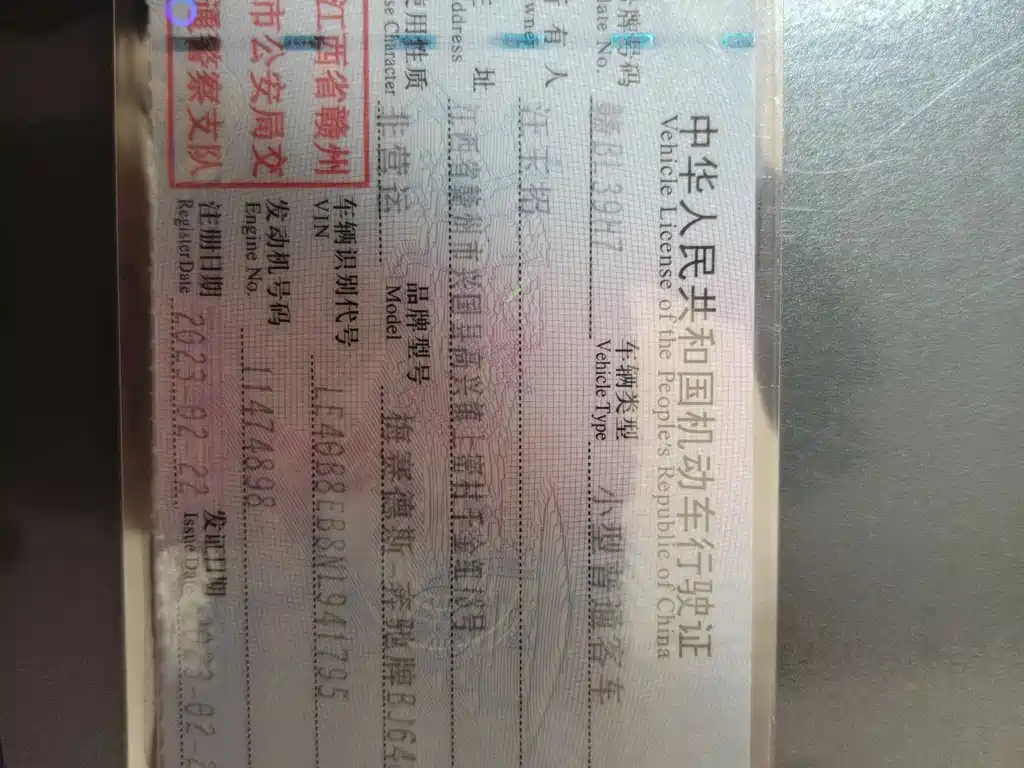 中华人民共和国机动车行驶证
Vehicle License of the People's Republic of China
号牌号码 赣BL39H7 车辆类型 小型普通客车
ate No. Vehicle Type
有人 汪
wner
址 江西省赣州市兴国县高兴镇上密村 组18号
ddress
使用性质 非营运 品牌型号 梅赛德斯-奔驰牌BJ64
se Character Model
江西省赣州
市公安局交
通警察支队
车辆识别代号 LE40B8EB8NL941795
VIN
发动机号码 11474898
Engine No.
注册日期 2023-02-22 发证日期 2023-02-2
Register Date Issue Date